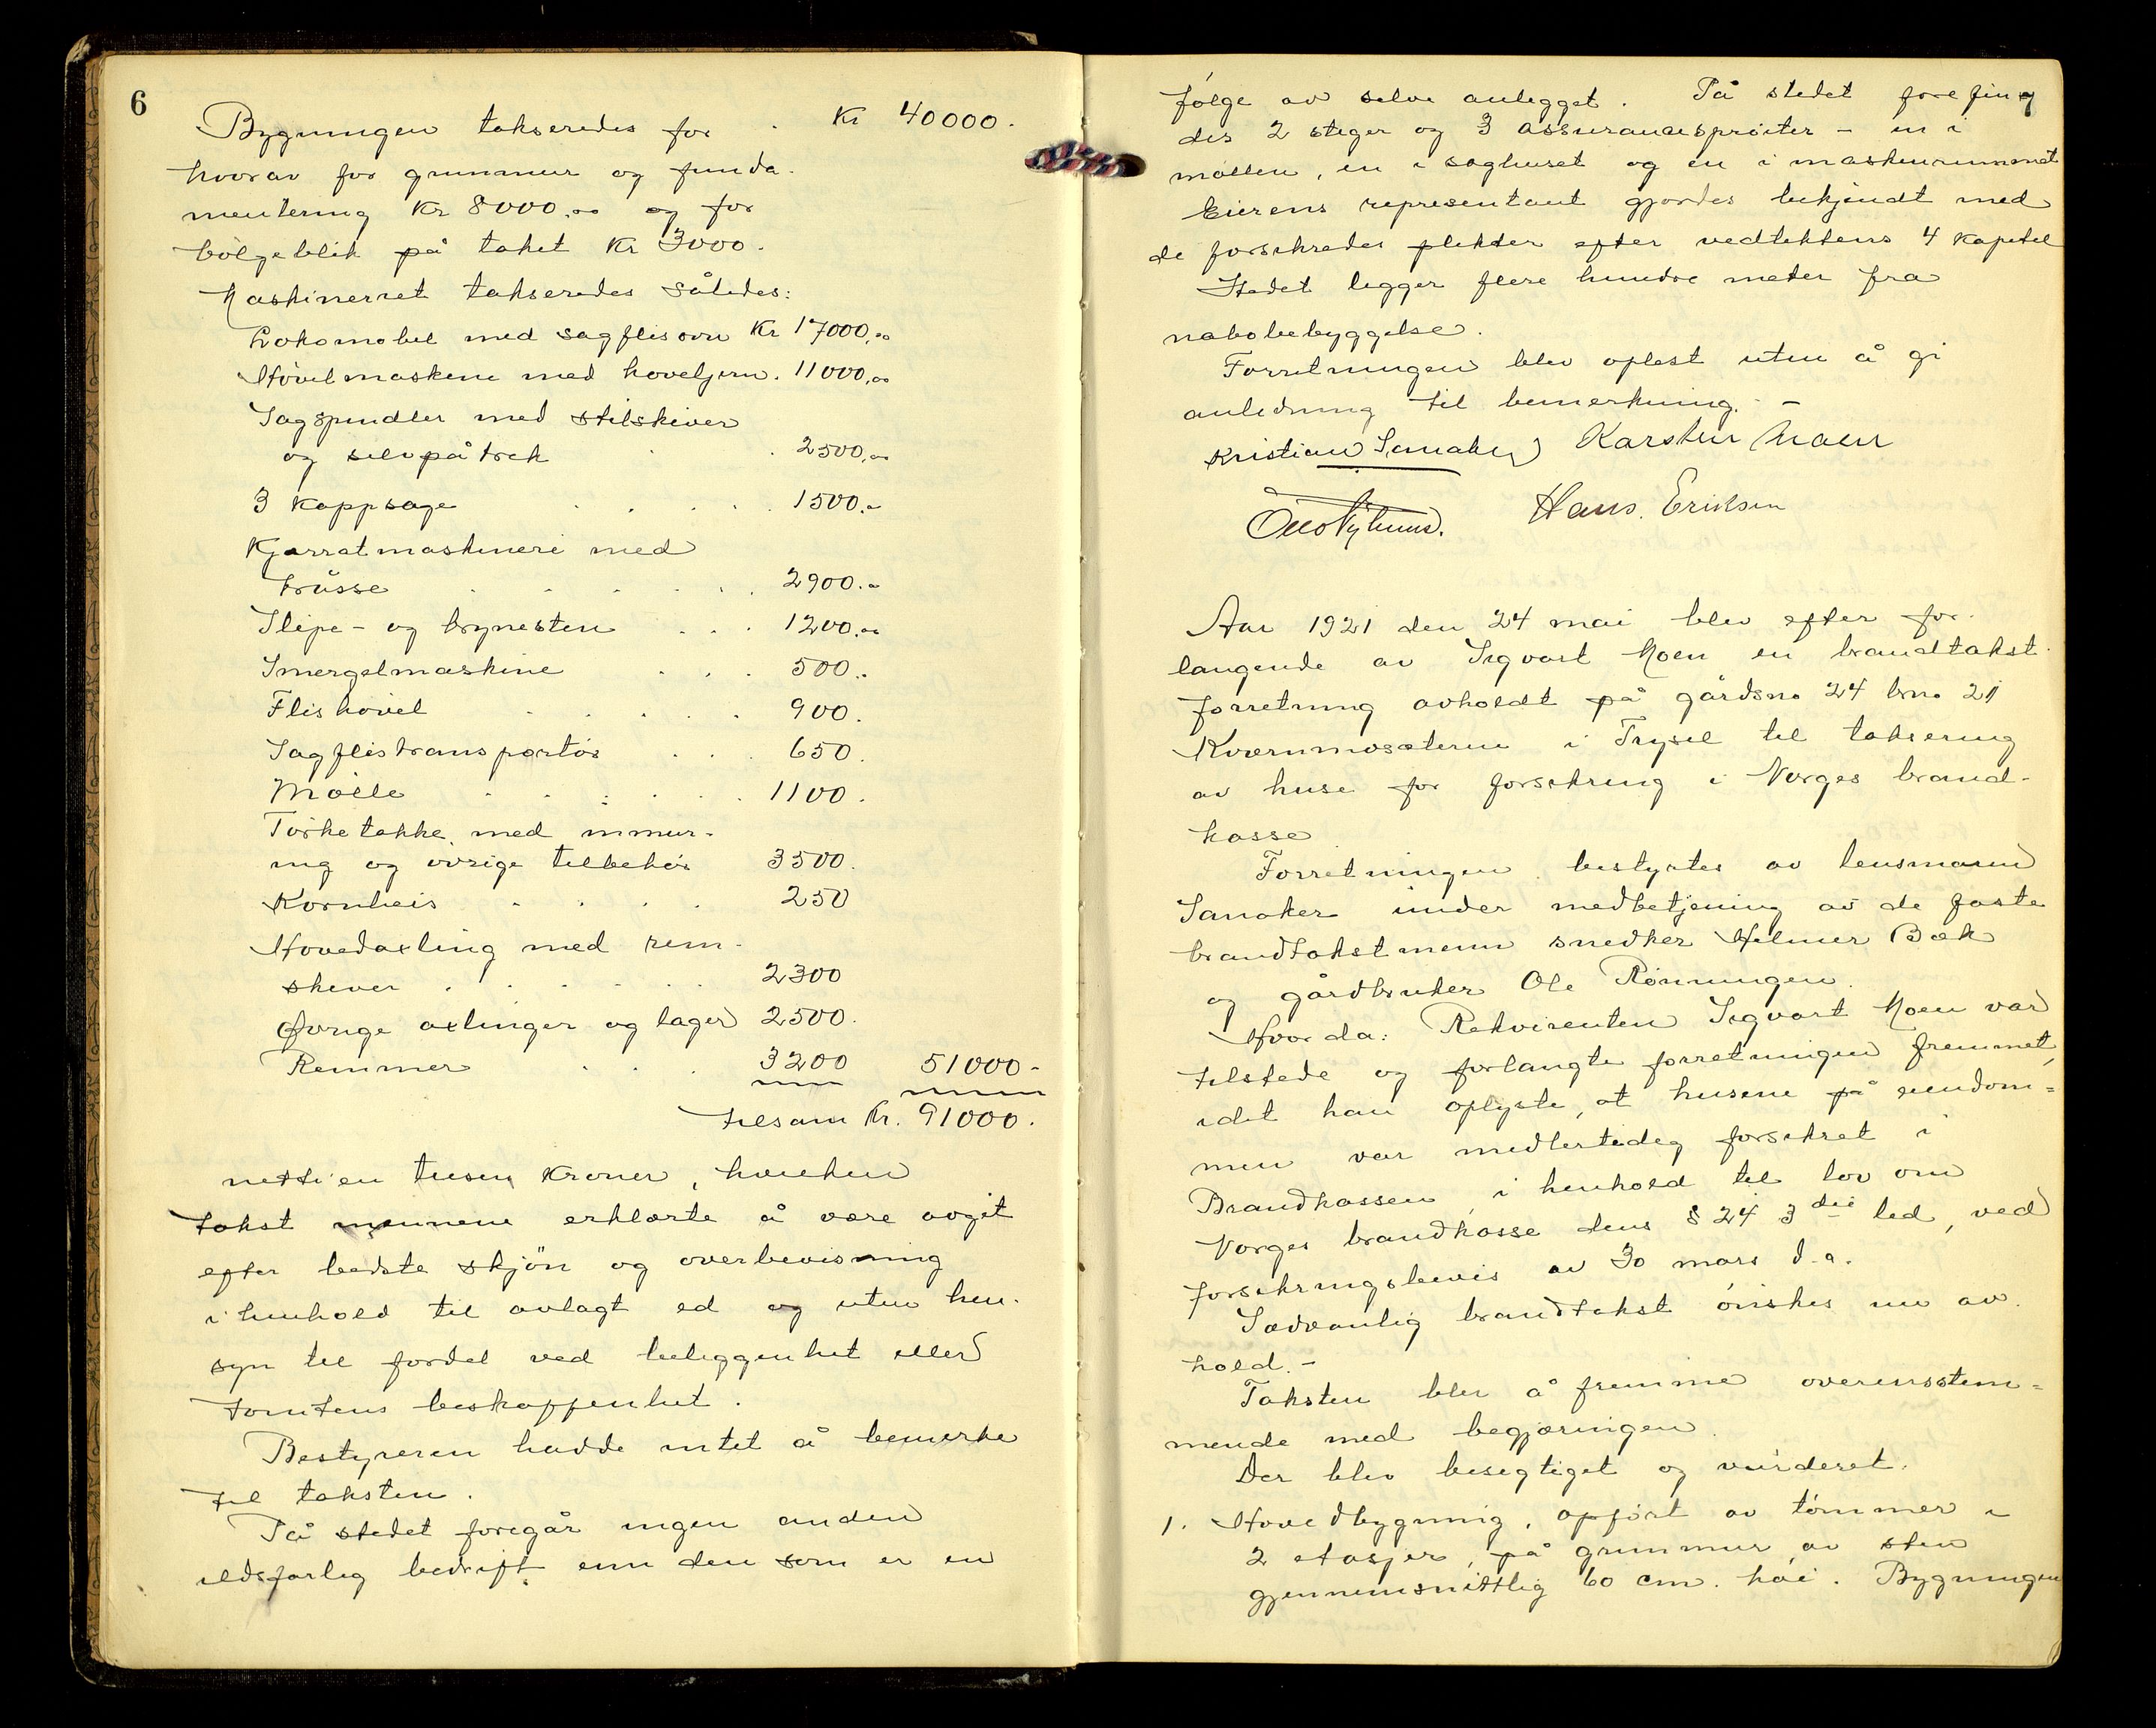 6
Bygningen takseredes for . Kr 40000.
hvorav for grunmur og funda-
mentering Kr 8000,00 og for
bølgeblik på taket Kr 3000.
Maskineriet takseredes således:
Lokomobil med sagflisovn Kr 17000,00
Høvelmaskine med høveljern . 11000,00
Sagspindler med stilskiver
og selvpåtræk . . 2500,00
3 Kappsage . . . . . 1500.-
Kjerratmaskineri med
trusse . . . . . . 2900.-
Slipe- og brynesten . . . 1200.00
Smergelmaskine . . . 500..
Flishøvel . . . . . 900.
Sagflistransportør . . . 650.
Mølle . . . . . . 1100.
Tørketakke med inmur-
ing og øvrige tilbehør 3500.
Kornheis . . . . 250
Hovedaxling med rem-
skiver . . . . . . 2300
Øvrige axlinger og lager 2500.
Remmer . . . 3200 51000-
tilsam Kr. 91000.
nettien tusen Kroner, hvilken
takst mennene erklærte å være avgit
efter bedste skjön og overbevisning
i henhold til avlagt ed og uten hen-
syn til fordel ved beliggenhet eller
tomtens beskaffenhet.
Bestyreren hadde intet å bemerke
til taksten.
På stedet foregår ingen anden
ildsfarlig bedrift enn den som er en
følge av selve anlegget. På stedet forefin
des 2 stiger og 3 assurancesprøiter - en i
møllen, en i saghuset og en i maskinrummet
Eierens representant gjordes bekjendt med
de forsikredes plikter efter vedtektens 4 Kapitel
Stedet ligger flere hundre meter fra
nabobebyggelse.
Forretningen blev oplest uten å gi
anledning til bemerkning. -
Kristian Sanaker Karsten Moen
Hans. Eriksen
Aar 1921 den 24 mai blev efter for-
langende av Sigvart Moen en brandtakst-
forretning avholdt på gårdsno 24 brno 21
Kvernmosæteren i Trysil til taksering
av huse for forsikring i Norges brand-
kasse
Forretningen bestyrtes av lensmand
Sanaker under medbetjening av de faste
brandtakstmenn snedker Helmer Bæk
og gårdbruker Ole Rønningen.
Hvorda: Rekvirenten Sigvart Moen var
tilstede og forlangte forretningen fremmet,
idet han oplyste, at husene på eiendom=
men var midlertidig forsikret i
Brandkassen, i henhold til lov om
Norges brandkasse dens § 24 3die led, ved
forsikringsbevis av 30 mars d.a.
Sædvanlig brandtakst ønskes nu av-
hold.-
Taksten blev å fremme overensstem=
mende med begjæringen.
Der blev besigtiget og vurderet.
1. Hovedbygning, opført av tømmer i
2 etasjer, på grunmur av sten
gjennemsnittlig 60 cm. høi. Bygningen